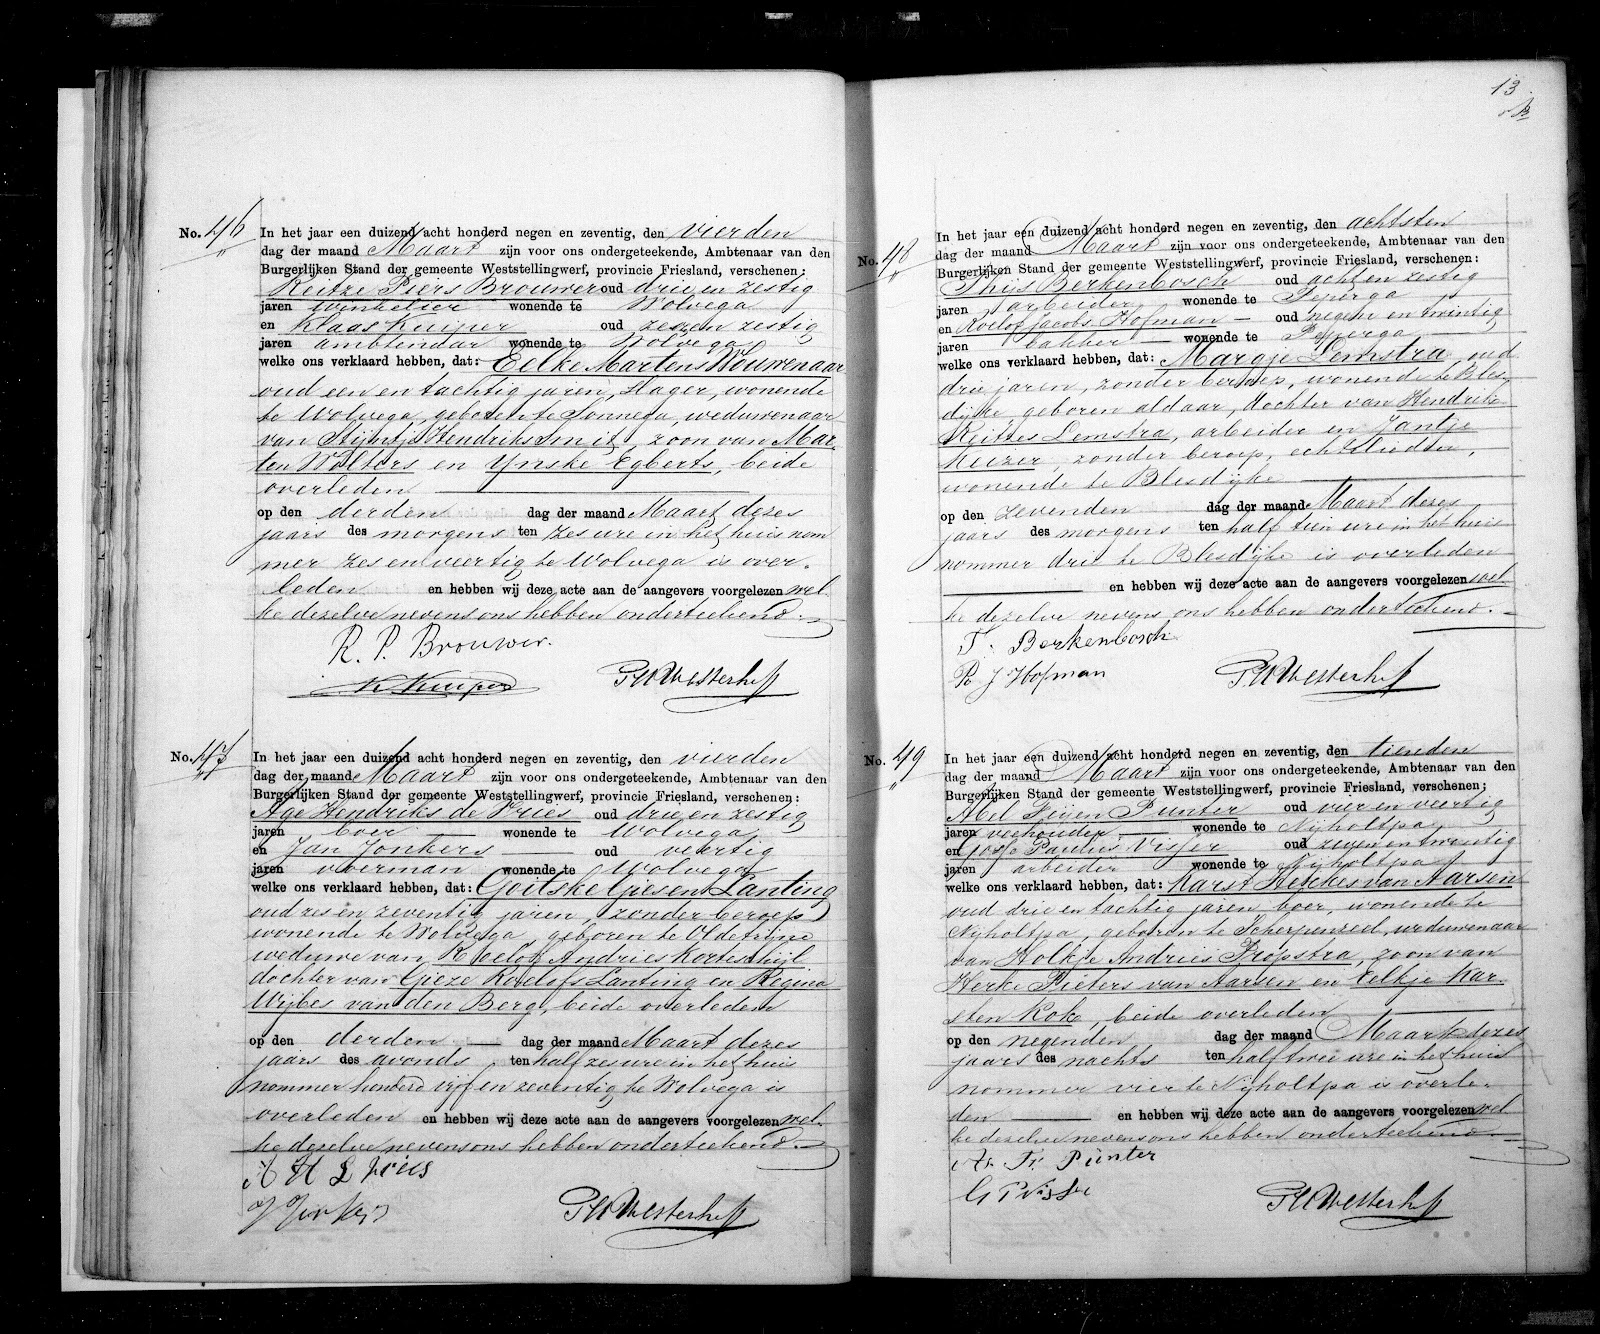 No. 46
In het jaar een duizend acht honderd negen en zeventig, den vierden
dag der maand Maart zijn voor ons ondergeteekende, Ambtenaar van den
Burgerlijken Stand der gemeente Weststellingwerf, provincie Friesland, verschenen:
Reitze Piers Brouwer oud drie en zestig
jaren winkelier wonende te Wolvega
en Klaas Kuiper oud zes en zestig
jaren ambtenaar wonende te Wolvega
welke ons verklaard hebben, dat: Eelke Martens Wouwenaar
oud een en tachtig jaren, slager, wonende
te Wolvega, geboren te Sonnega, weduwenaar
van Stijntje Hendriks Smit, zoon van Mar
ten Wolters en Ynske Egberts, beide
overleden
op den derden dag der maand Maart dezes
jaars des morgens ten zes ure in het huis nom
mer zes en veertig te Wolvega is over-
leden en hebben wij deze acte aan de aangevers voorgelezen wel
ke dezelve nevens ons hebben onderteekend.
R. P. Brouwer.
K Kuiper
PHWesterhof
No. 47
In het jaar een duizend acht honderd negen en zeventig, den vierden
dag der maand Maart zijn voor ons ondergeteekende, Ambtenaar van den
Burgerlijken Stand der gemeente Weststellingwerf, provincie Friesland, verschenen:
Age Hendriks de Vries oud drie en zestig
jaren boer wonende te Wolvega
en Jan Jonkers oud veertig
jaren voerman wonende te Wolvega
welke ons verklaard hebben, dat: Goitske Giesen Lanting
oud zes en zeventig jaren, zonder beroep
wonende te Wolvega, geboren te Oldetrijne
weduwe van Roelof Andries Kortestijl
dochter van Gieze Roelofs Lanting en Regina
Wijbes van den Berg, beide overleden
op den derden dag der maand Maart dezes
jaars des avonds ten half zes ure in het huis
nommer honderd vijf en zeventig te Wolvega is
overleden en hebben wij deze acte aan de aangevers voorgelezen wel-
ke dezelve nevens ons hebben onderteekend.
A H d Vries
J Jonkers
PHWesterhof
13
No. 48
In het jaar een duizend acht honderd negen en zeventig, den achtsten
dag der maand Maart zijn voor ons ondergeteekende, Ambtenaar van den
Burgerlijken Stand der gemeente Weststellingwerf, provincie Friesland, verschenen:
Thijs Berkenbosch oud acht en zestig
jaren arbeider wonende te Peperga
en Roelof Jacobs Hofman oud negen en twintig
jaren bakker wonende te Peperga
welke ons verklaard hebben, dat: Margje Lemstra, oud
drie jaren, zonder beroep, wonende te Bles-
dijke geboren aldaar, dochter van Hendrik
Reitses Lemstra, arbeider en Jantje
Keizer, zonder beroep, echtelieden,
wonende te Blesdijke
op den zevenden dag der maand Maart dezes
jaars des morgens ten half tien ure in het huis
nommer drie te Blesdijke is overleden
en hebben wij deze acte aan de aangevers voorgelezen wel-
ke dezelve nevens ons hebben onderteekend.
T. Berkenbosch
R J Hofman
PHWesterhof
No. 49
In het jaar een duizend acht honderd negen en zeventig, den tienden
dag der maand Maart zijn voor ons ondergeteekende, Ambtenaar van den
Burgerlijken Stand der gemeente Weststellingwerf, provincie Friesland, verschenen:
Abel Punter oud vier en veertig
jaren veehouder wonende te Nijholtpa
en Gosse Paulus Visser oud zeven en twintig
jaren arbeider wonende te Nijholtpa
welke ons verklaard hebben, dat: Karst Herkes van Aarsen
oud drie en tachtig jaren boer, wonende te
Nijholtpa, geboren te Scherpenzeel, weduwenaar
van Holkje Andries Propstra, zoon van
Herke Pieters van Aarsen en Eelkje Kar-
sten Kok, beide overleden
op den negenden dag der maand Maart dezes
jaars des nachts ten half twee ure in het huis
nommer vier te Nijholtpa is overle-
den en hebben wij deze acte aan de aangevers voorgelezen wel
ke dezelve nevens ons hebben onderteekend.
A. F. Punter
G P Visser
PHWesterhof